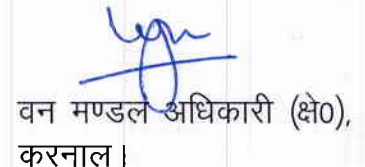 वन मण्डल अधिकारी (क्षे0),
करनाल।